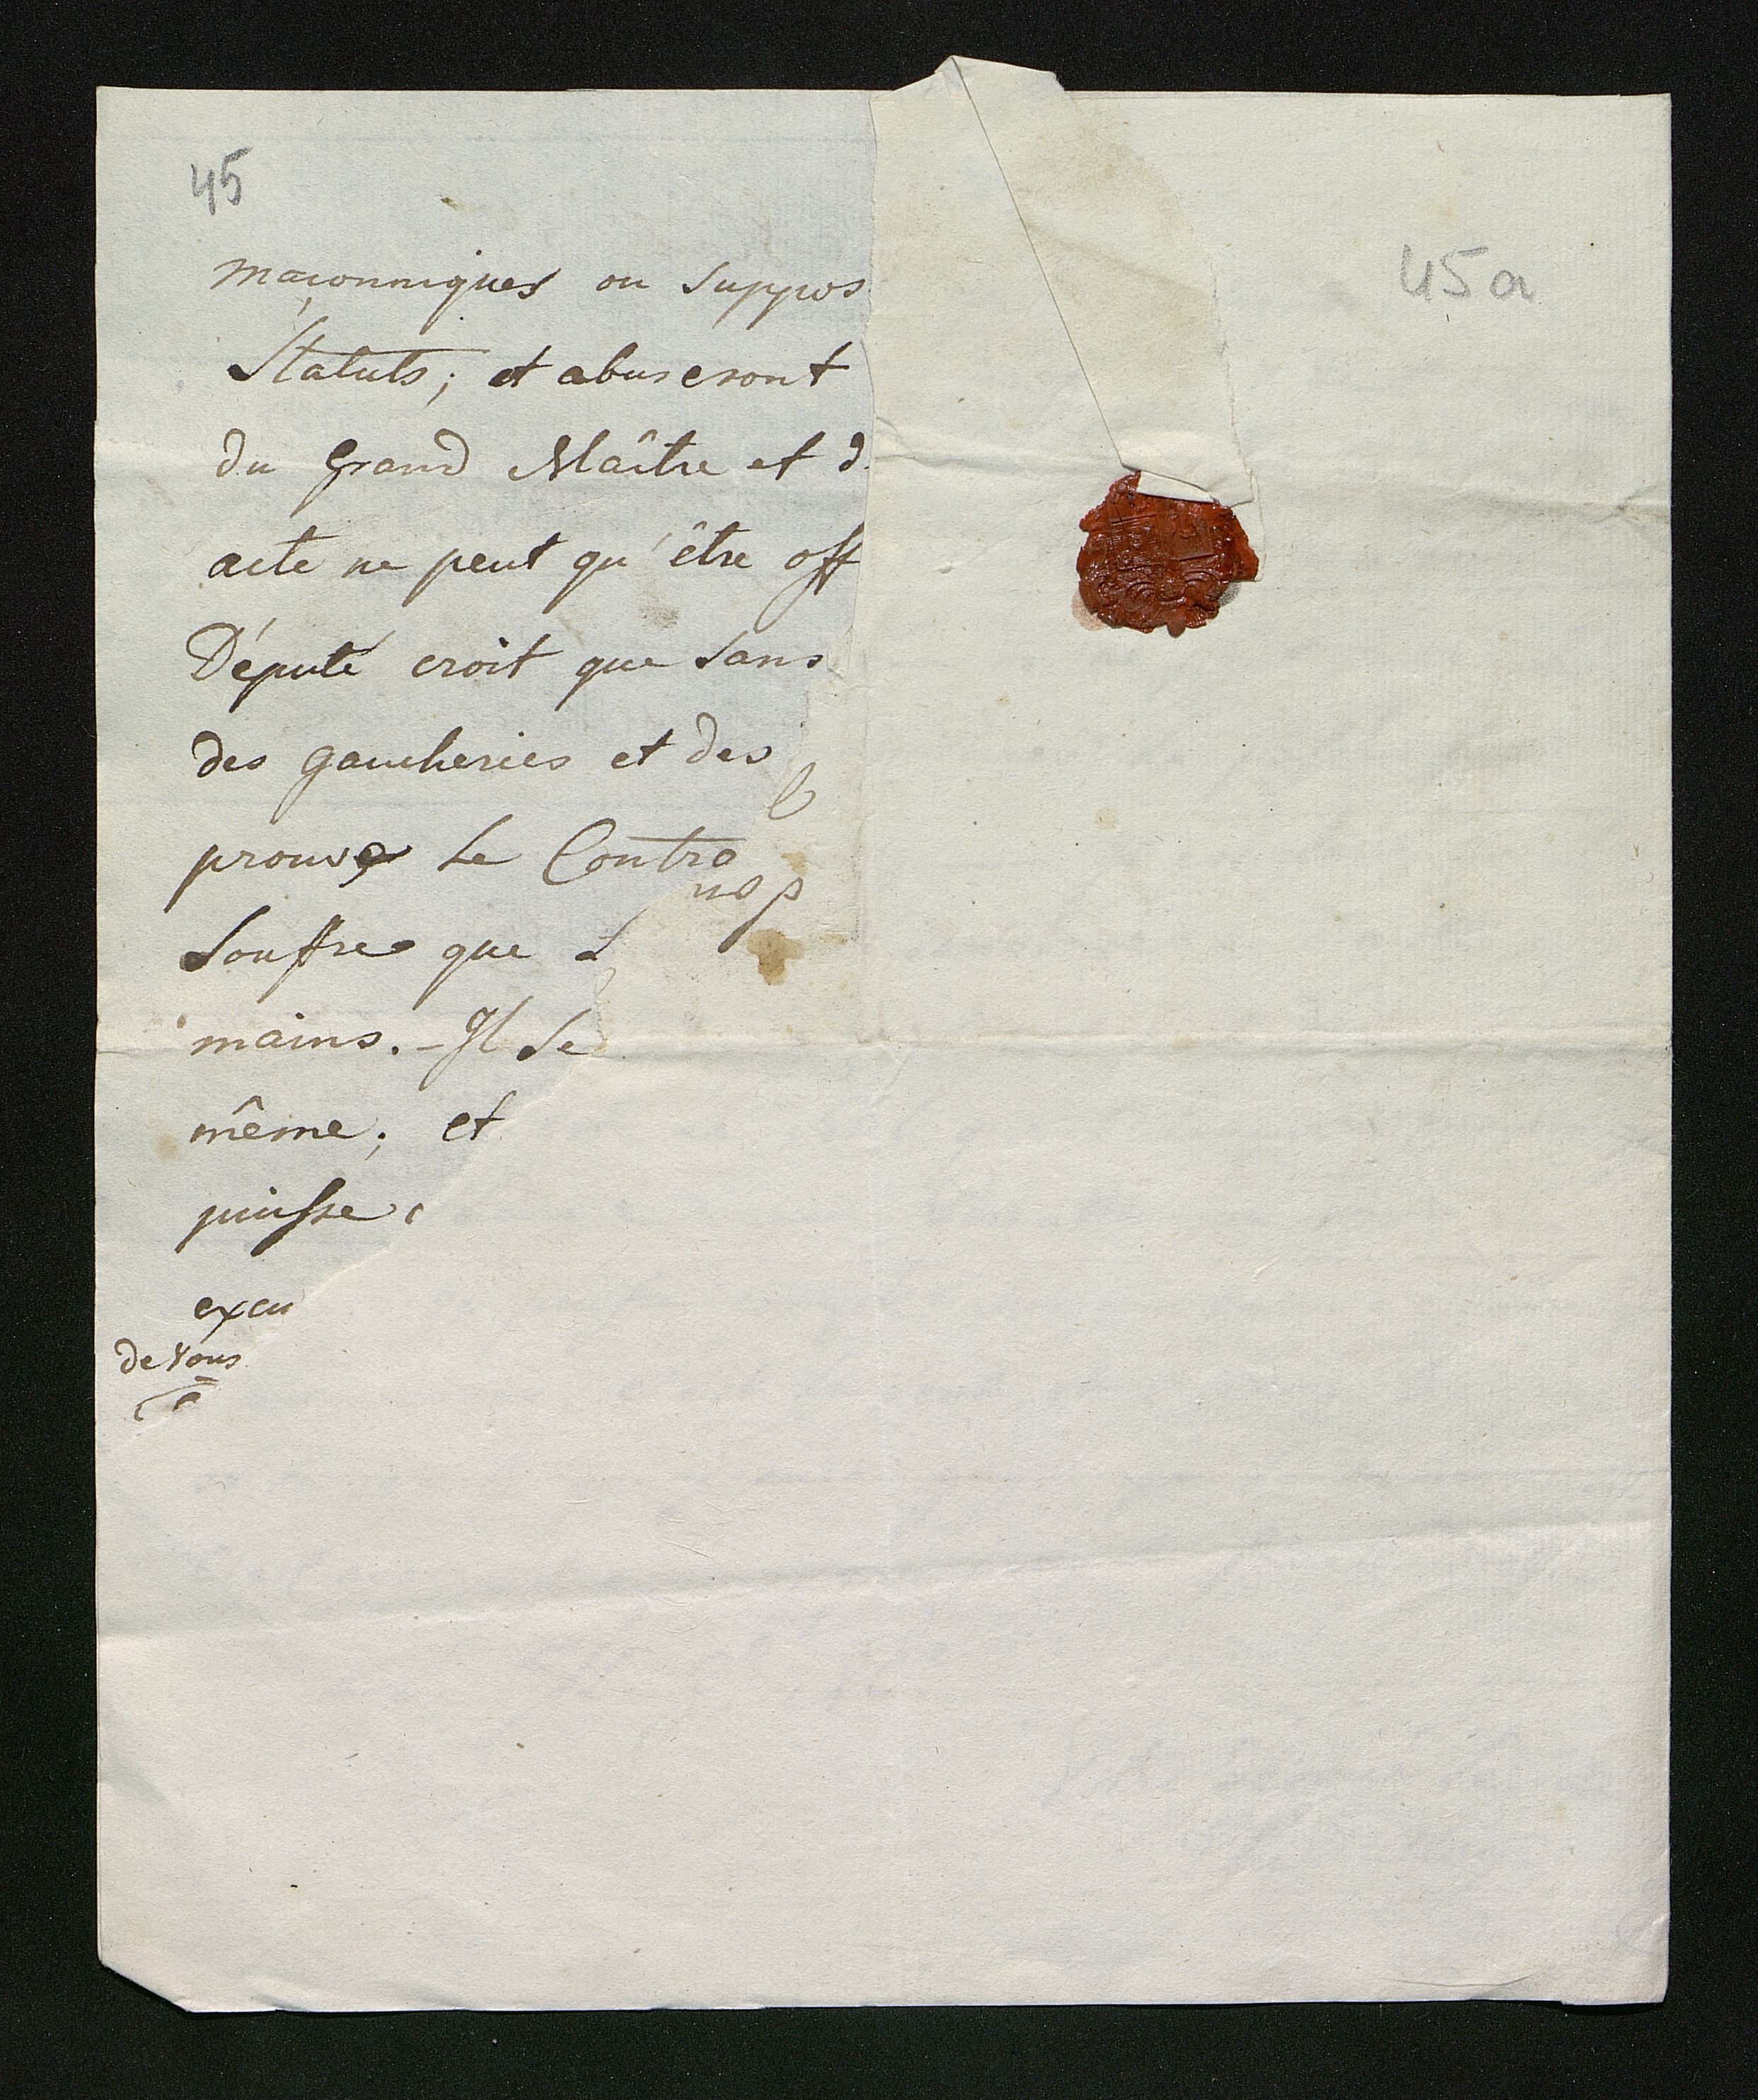 45
45a
maçonniques ou suppos
Statuts; et abuseront
du Grand Maître et d
acte ne peut qu'être off
Député croit que sans
des gaucheries et des
prouve Le Contra
souffre que
mains. - Il se
même; et
puisse
excu
de vous